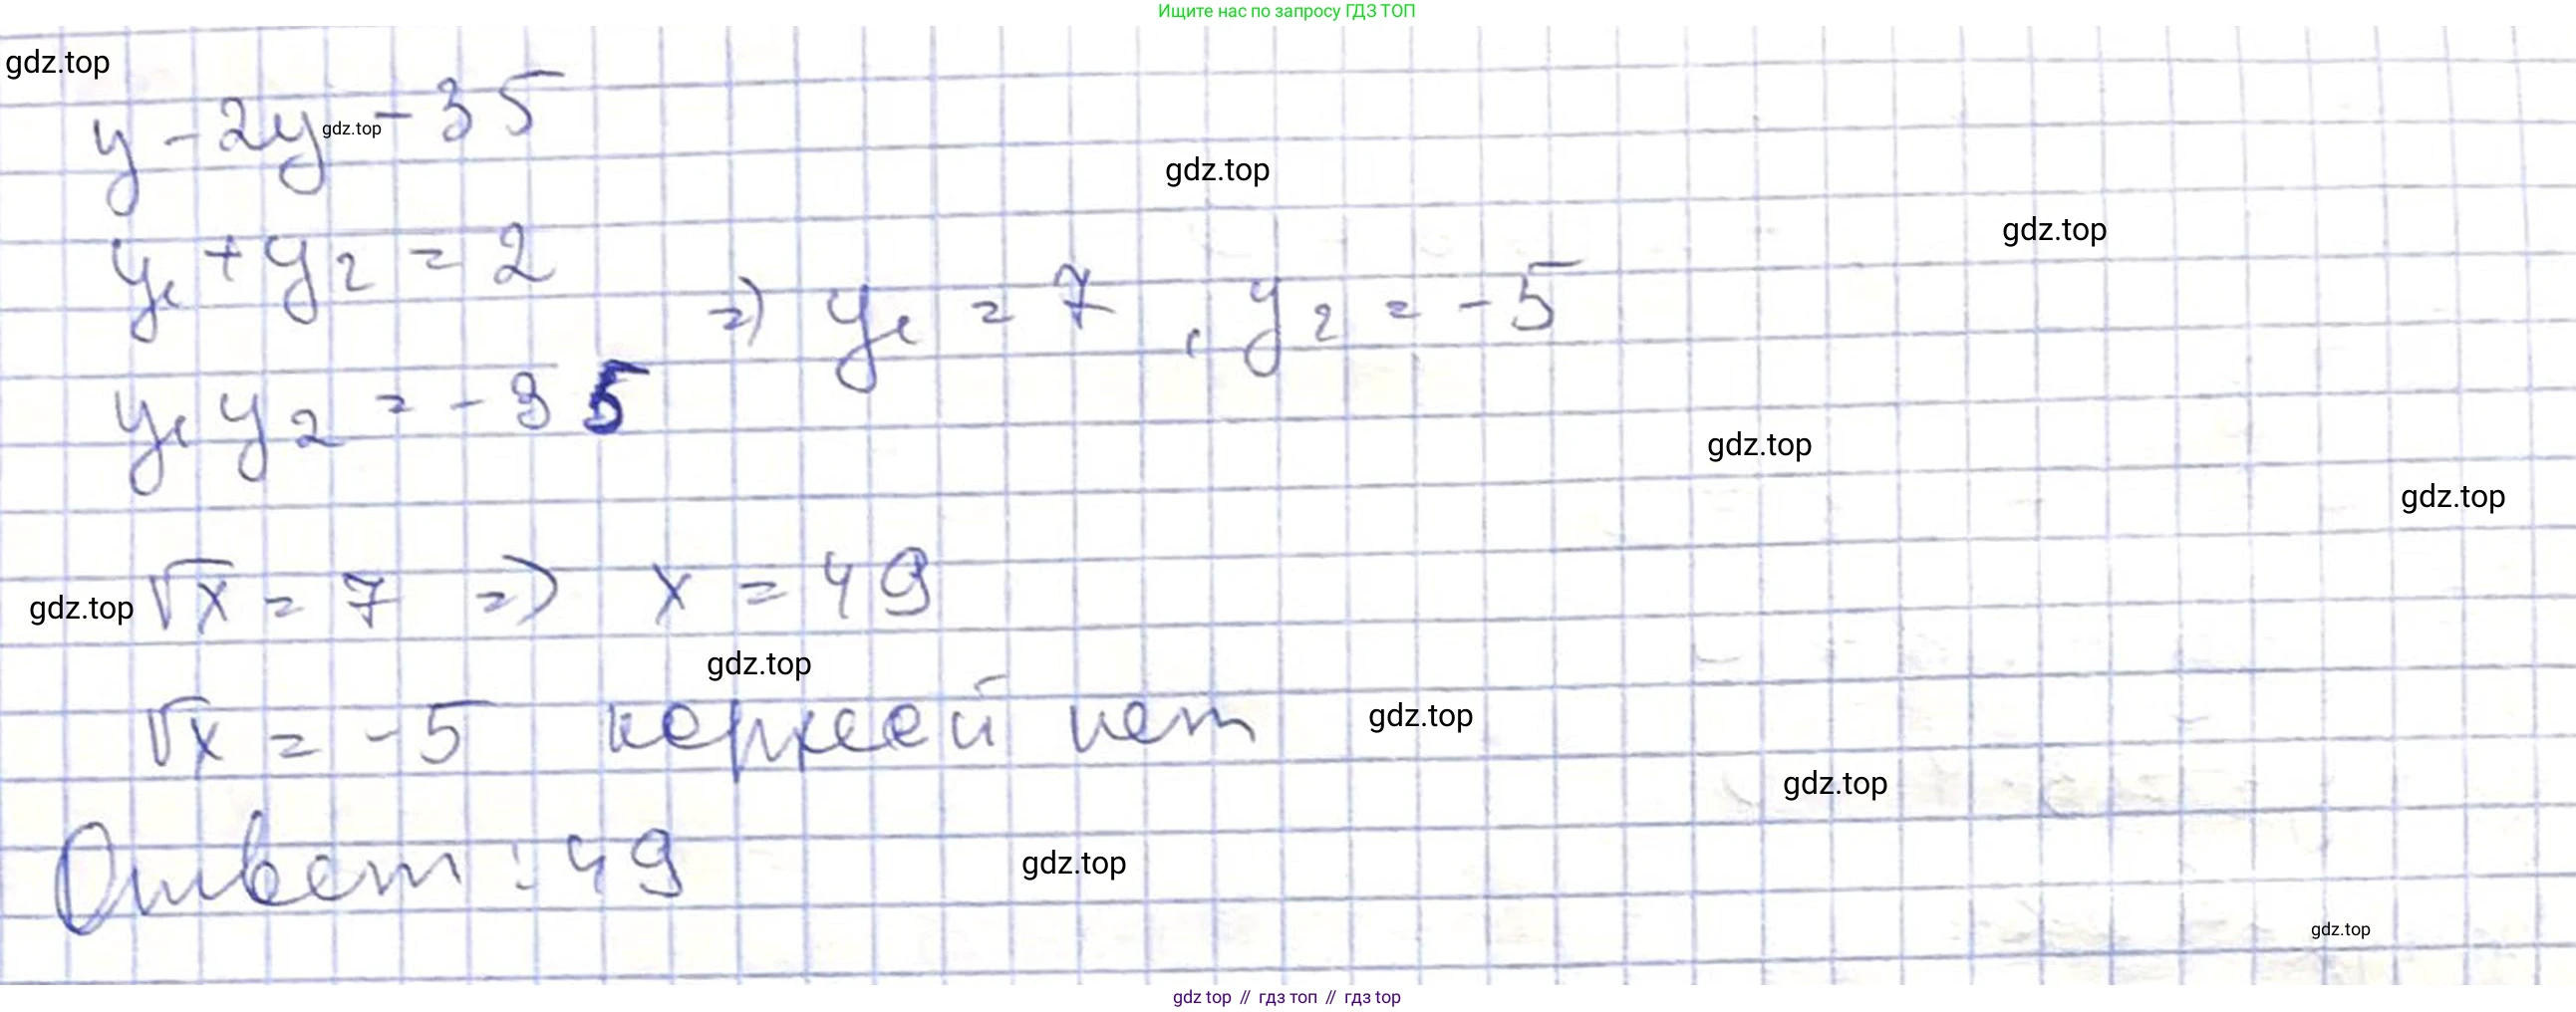 Ищите нас по запросу ГДЗ ТОП
gdz.top
y - 2y - 35
gdz.top
gdz.top
gdz.top
y₁ + y₂ = 2
=> y₁ = 7, y₂ = -5
y₁ y₂ = -35
gdz.top
gdz.top
√x = 7 => x = 49
gdz.top
gdz.top
√x = -5 корней нет
gdz.top
gdz.top
Ответ: 49
gdz.top
gdz.top
gdz top // гдз топ // гдз top